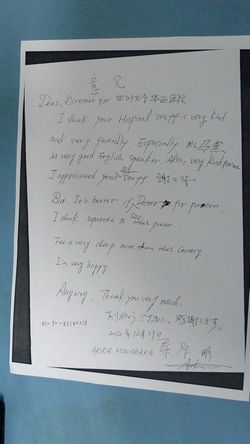 意见
Dear, Director for 四川大学华西医院
I think your Hospital staff is very kind
and very friendly Especially Ms
is very good English speaker. Also, very kind for me
I appreciated your all staff 谢々
But It's better if Doctor for
I think separate to other
Fee is very cheap more than other Country
I'm very happy
Anyway. Thank you very much.
ありがとうございました。感謝します。
2012年12月27日 桑原 明
AKIRA KUWABARA